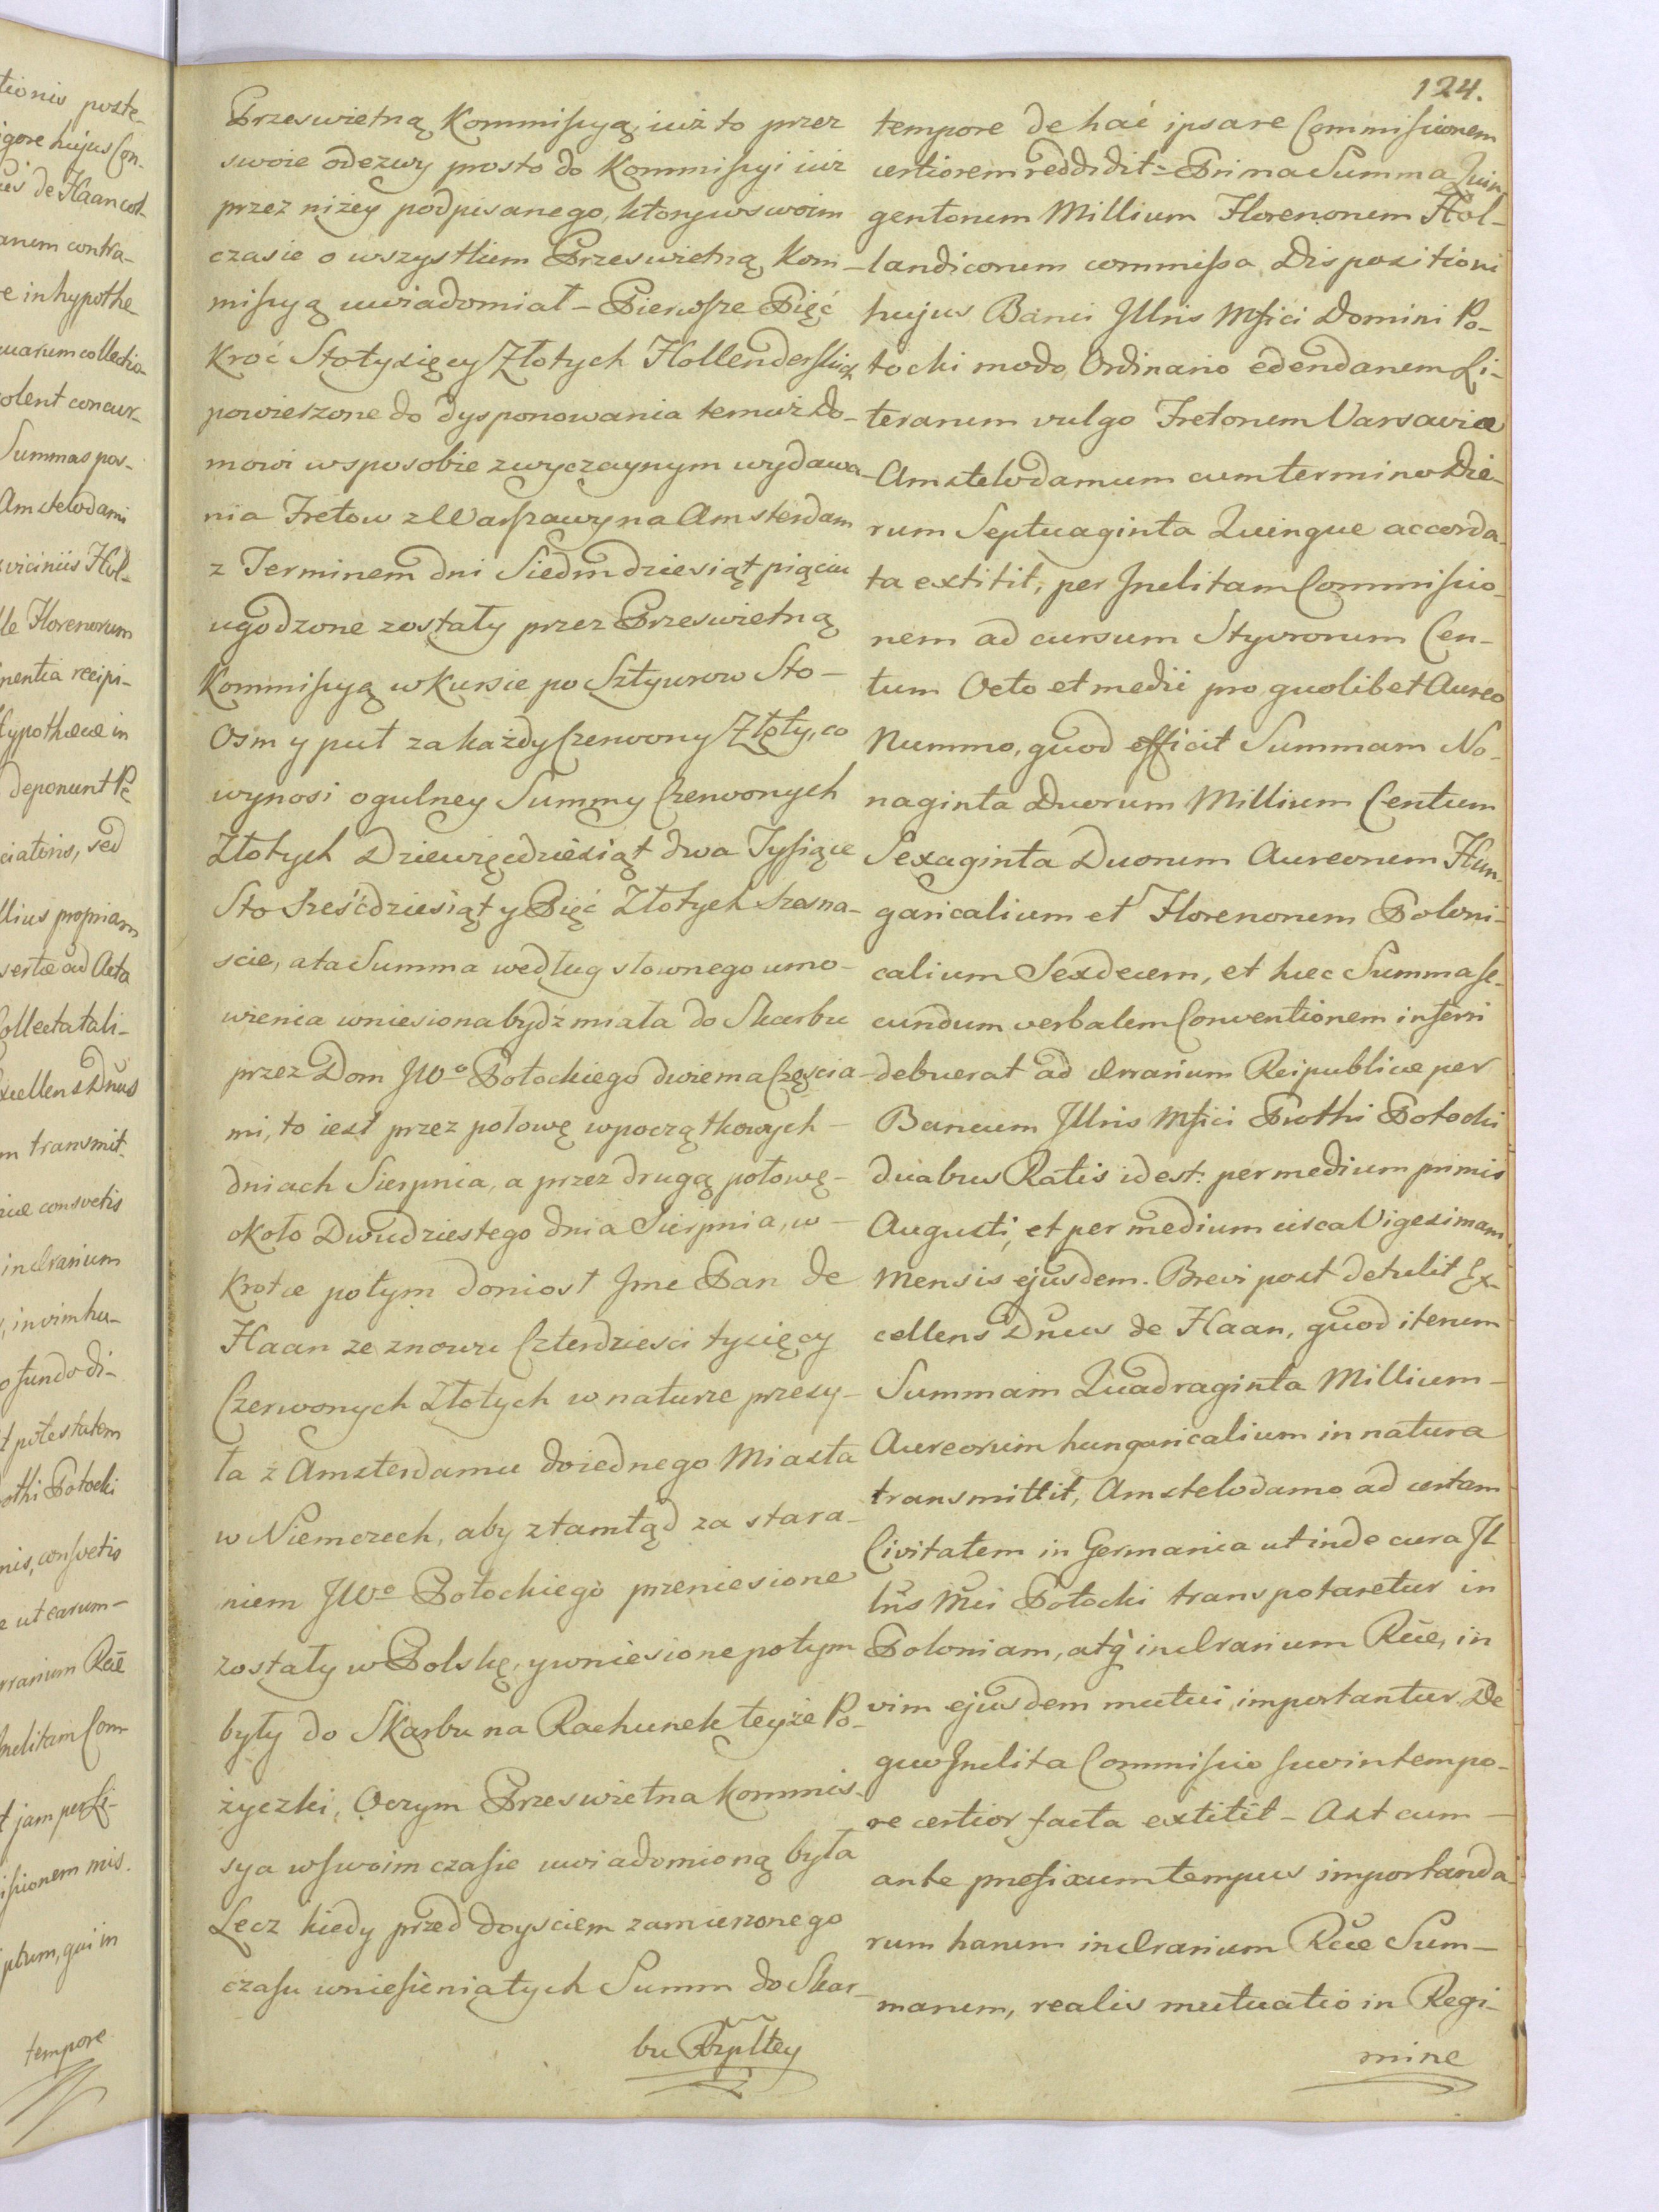 124.
Przeswietną Kommissyą, iuż to przez
swoie odezwy prosto do Kommissyi iuż
przez niżey podpisanego, ktory w swoim
czasie o wszystkiem Przeswietną Kom-
missyą uwiadomiał – Pierwsze Pięć
kroć Stotysięcy Złotych Hollenderskich
powierzone do dysponowania temuż Do-
mowi w sposobie zwyczaynym wydawa-
nia Tretow z Warszawy na Amsterdam
z Terminem dni Siedmdziesiąt piąciu
ugodzone zostały przez Przeswietną
Kommissyą w Kursie po Sztyurow Sto-
Osm y puł za każdy Czerwony Złoty, co
wynosi ogulney Summy Czerwonych
Złotych Dziewięcdziesiąt dwa Tysiące
Sto Sześćdziesiąt y Pięć Złotych szesna-
scie, ata Summa według słownego umo-
wienia wniesiona bydź miała do Skarbu
przez Dom JWo Potockiego dwiema Częscia-
mi, to iest przez połowę w początkowych –
dniach Sierpnia, a przez drugą połowę –
około Dwudziestego dnia Sierpnia, w –
krotce potym doniosł Jme Pan de
Haan ze znowu Czterdziesci tysięcy
Czerwonych Złotych w naturze przesy-
ła z Amsterdamu do iednego Miasta
w Niemczech, aby ztamtąd za stara-
niem JWo Potockiego przeniesione
zostały w Polskę, y wniesione potym
były do Skarbu na Rachunek teyże Po-
życzki, Oczym Przeswietna Kommis-
sya w swoim czasie uwiadomioną była
Lecz kiedy przed doysciem zamierzonego
czasu wniesienia tych Summ do Skar-
bu Rzpltey
tempore de hac ipsa re Commissionem
certiorem reddidit – Prima Summa Quin
gentorum Millium Florenorum Hol-
landicorum commissa Dispozitioni
hujus Banci Jllris Mfici Domini Po-
tocki modo Ordinario edendarum Li-
terarum vulgo Tretorum Varsavia
Amstelodamum cum termino Die-
rum Septuaginta Quinque accorda-
ta extitit, per Jnclitam Commissio-
nem ad cursum Styvrorum Cen-
tum Octo et medii pro quolibet Aureo
Nummo, quod efficit Summam No-
naginta Duorum Millium Centum
Sexaginta Duorum Aureorum Hun-
garicalium et Florenorum Poloni-
calium Sexdecem, et hæc Summa se-
cundum verbalem Conventionem inferri
debuerat ad Ærarium Reipublicæ per
Bancum Jllris Mfici Prothi Potocki
duabus Ratis id est: per medium primis
Augusti, et per medium circa Vigesimam
Mensis ejusdem. Brevi post detulit Ex-
cellens Dnus de Haan, quod iterum
Summam Quadraginta Millium –
Aureorum hungaricalium in natura
transmittit, Amstelodamo ad certam
Civitatem in Germania ut inde cura Jl
lris Mci Potocki transpotaretur in
Poloniam, atq in Ærarium Rcæ, in
vim ejusdem mutui, importantur. De
quo Jnclita Commissio suo in tempo-
re certior facta extitit – Ast cum –
ante præfixum tempus importanda-
rum harum in Ærarium Rcæ Sum-
marum, realis mutuatio in Regi-
mine